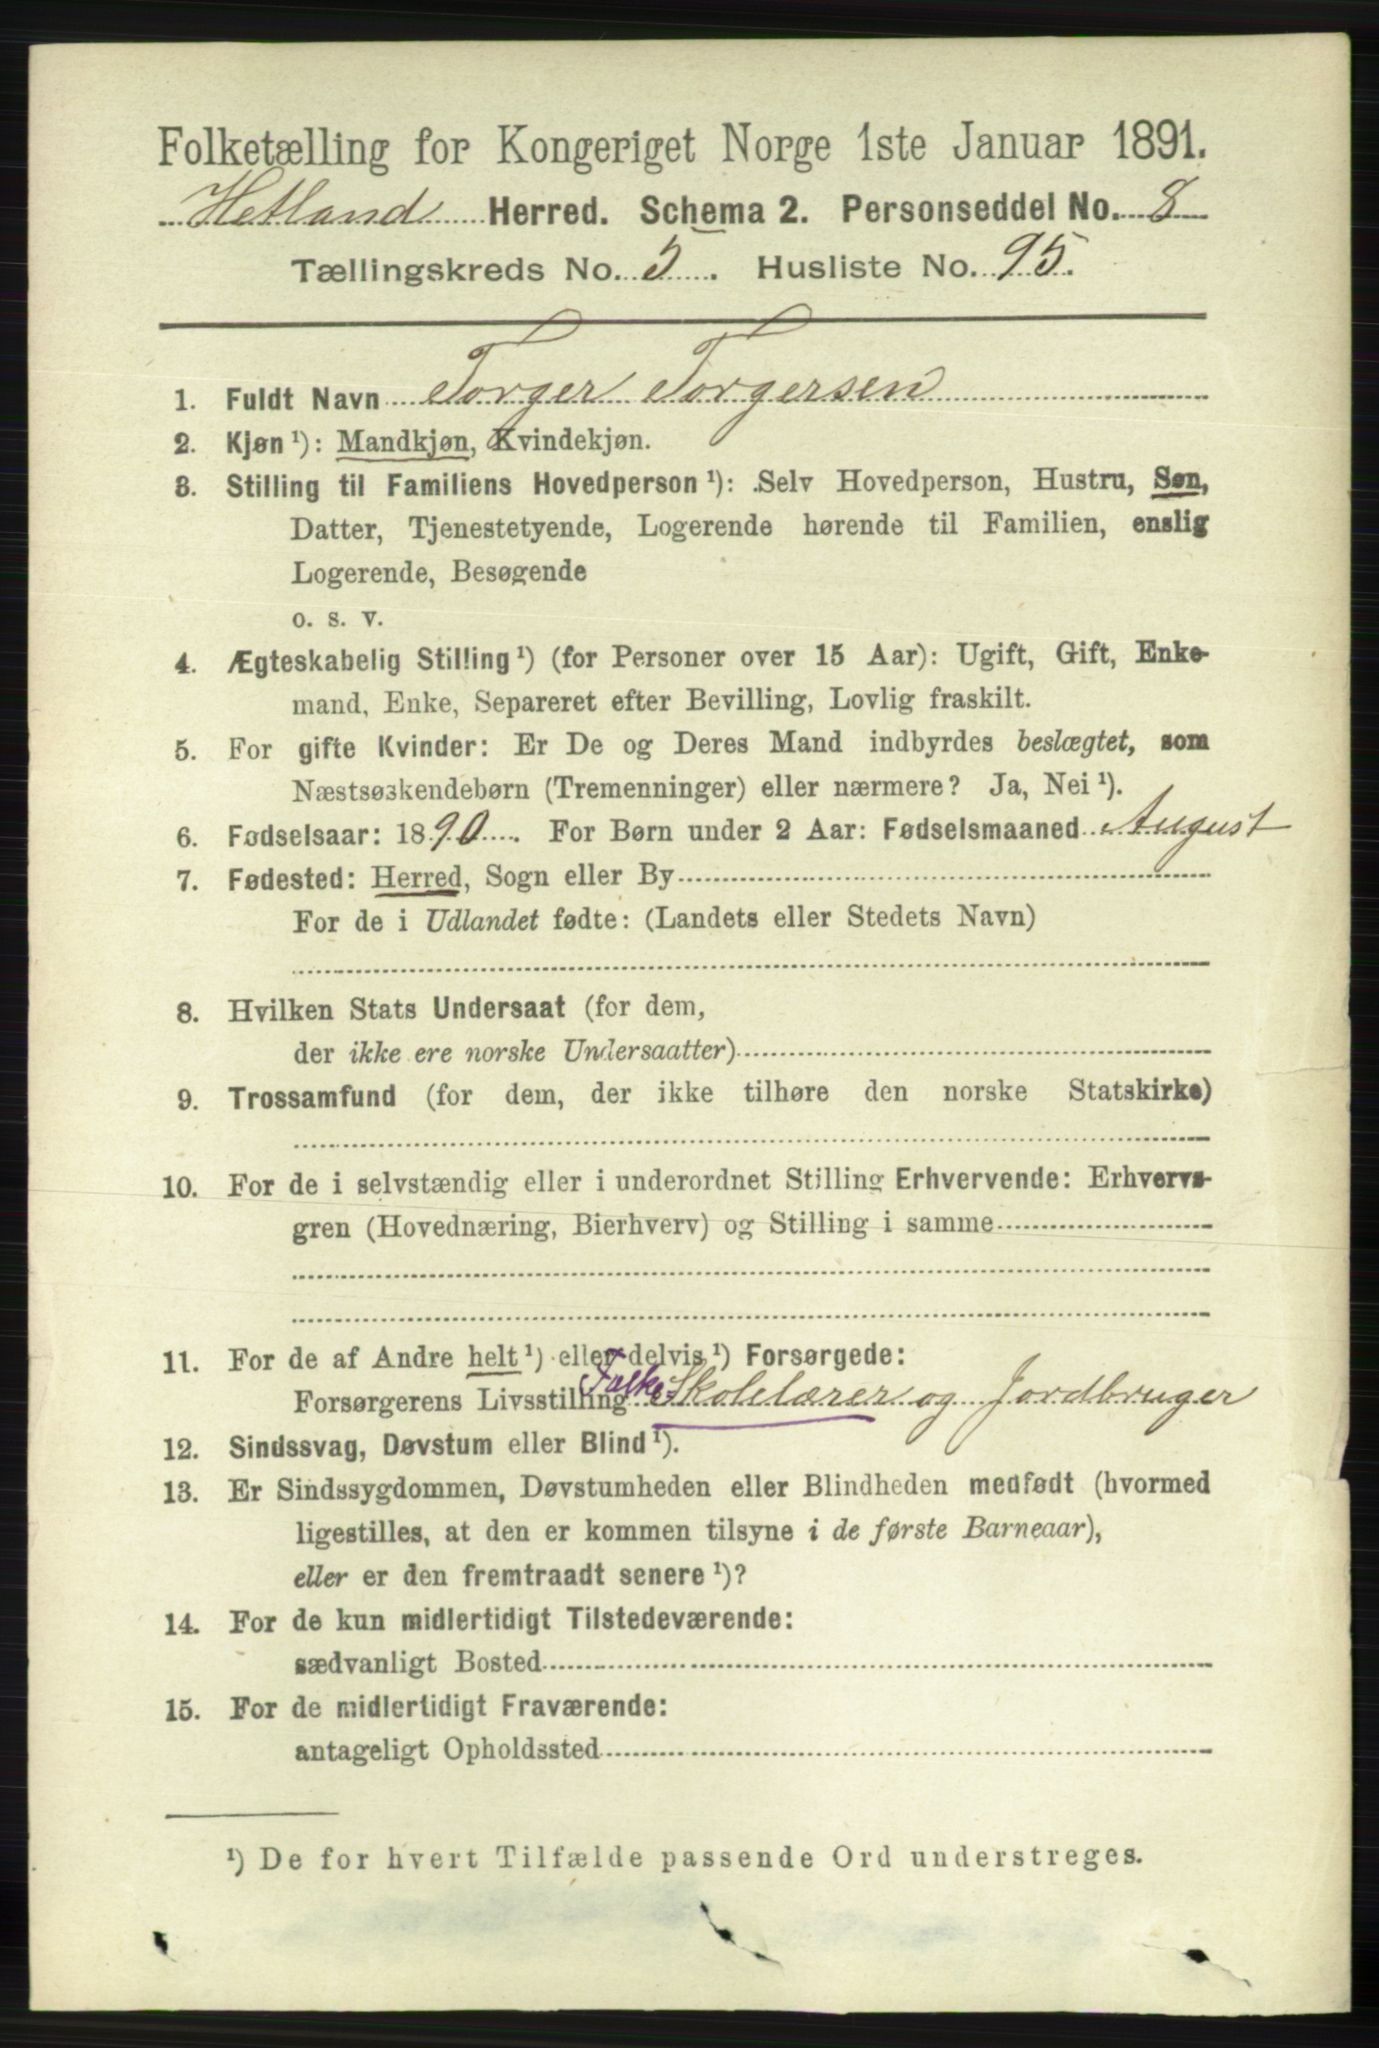 Folketælling for Kongeriget Norge 1ste Januar 1891.
Hetland Herred. Schema 2. Personseddel No. 8
Tællingskreds No. 5. Husliste No. 95.
1. Fuldt Navn Torger Torgersen
2. Kjøn ¹): Mandkjøn, Kvindekjøn.
3. Stilling til Familiens Hovedperson ¹): Selv Hovedperson, Hustru, Søn,
Datter, Tjenestetyende, Logerende hørende til Familien, enslig
Logerende, Besøgende
o. s. v.
4. Ægteskabelig Stilling ¹) (for Personer over 15 Aar): Ugift, Gift, Enke-
mand, Enke, Separeret efter Bevilling, Lovlig fraskilt.
5. For gifte Kvinder: Er De og Deres Mand indbyrdes beslægtet, som
Næstsøskendebørn (Tremenninger) eller nærmere? Ja, Nei ¹).
6. Fødselsaar: 1890. For Børn under 2 Aar: Fødselsmaaned August
7. Fødested: Herred, Sogn eller By
For de i Udlandet fødte: (Landets eller Stedets Navn)
8. Hvilken Stats Undersaat (for dem,
der ikke ere norske Undersaatter)
9. Trossamfund (for dem, der ikke tilhøre den norske Statskirke)
10. For de i selvstændig eller i underordnet Stilling Erhvervende: Erhvervs-
gren (Hovednæring, Bierhverv) og Stilling i samme
11. For de af Andre helt ¹) eller delvis ¹) Forsørgede:
Forsørgerens Livsstilling Folke-Skolelærer og Jordbruger
12. Sindssvag, Døvstum eller Blind ¹).
13. Er Sindssygdommen, Døvstumheden eller Blindheden medfødt (hvormed
ligestilles, at den er kommen tilsyne i de første Barneaar),
eller er den fremtraadt senere ¹)?
14. For de kun midlertidigt Tilstedeværende:
sædvanligt Bosted
15. For de midlertidigt Fraværende:
antageligt Opholdssted
¹) De for hvert Tilfælde passende Ord understreges.